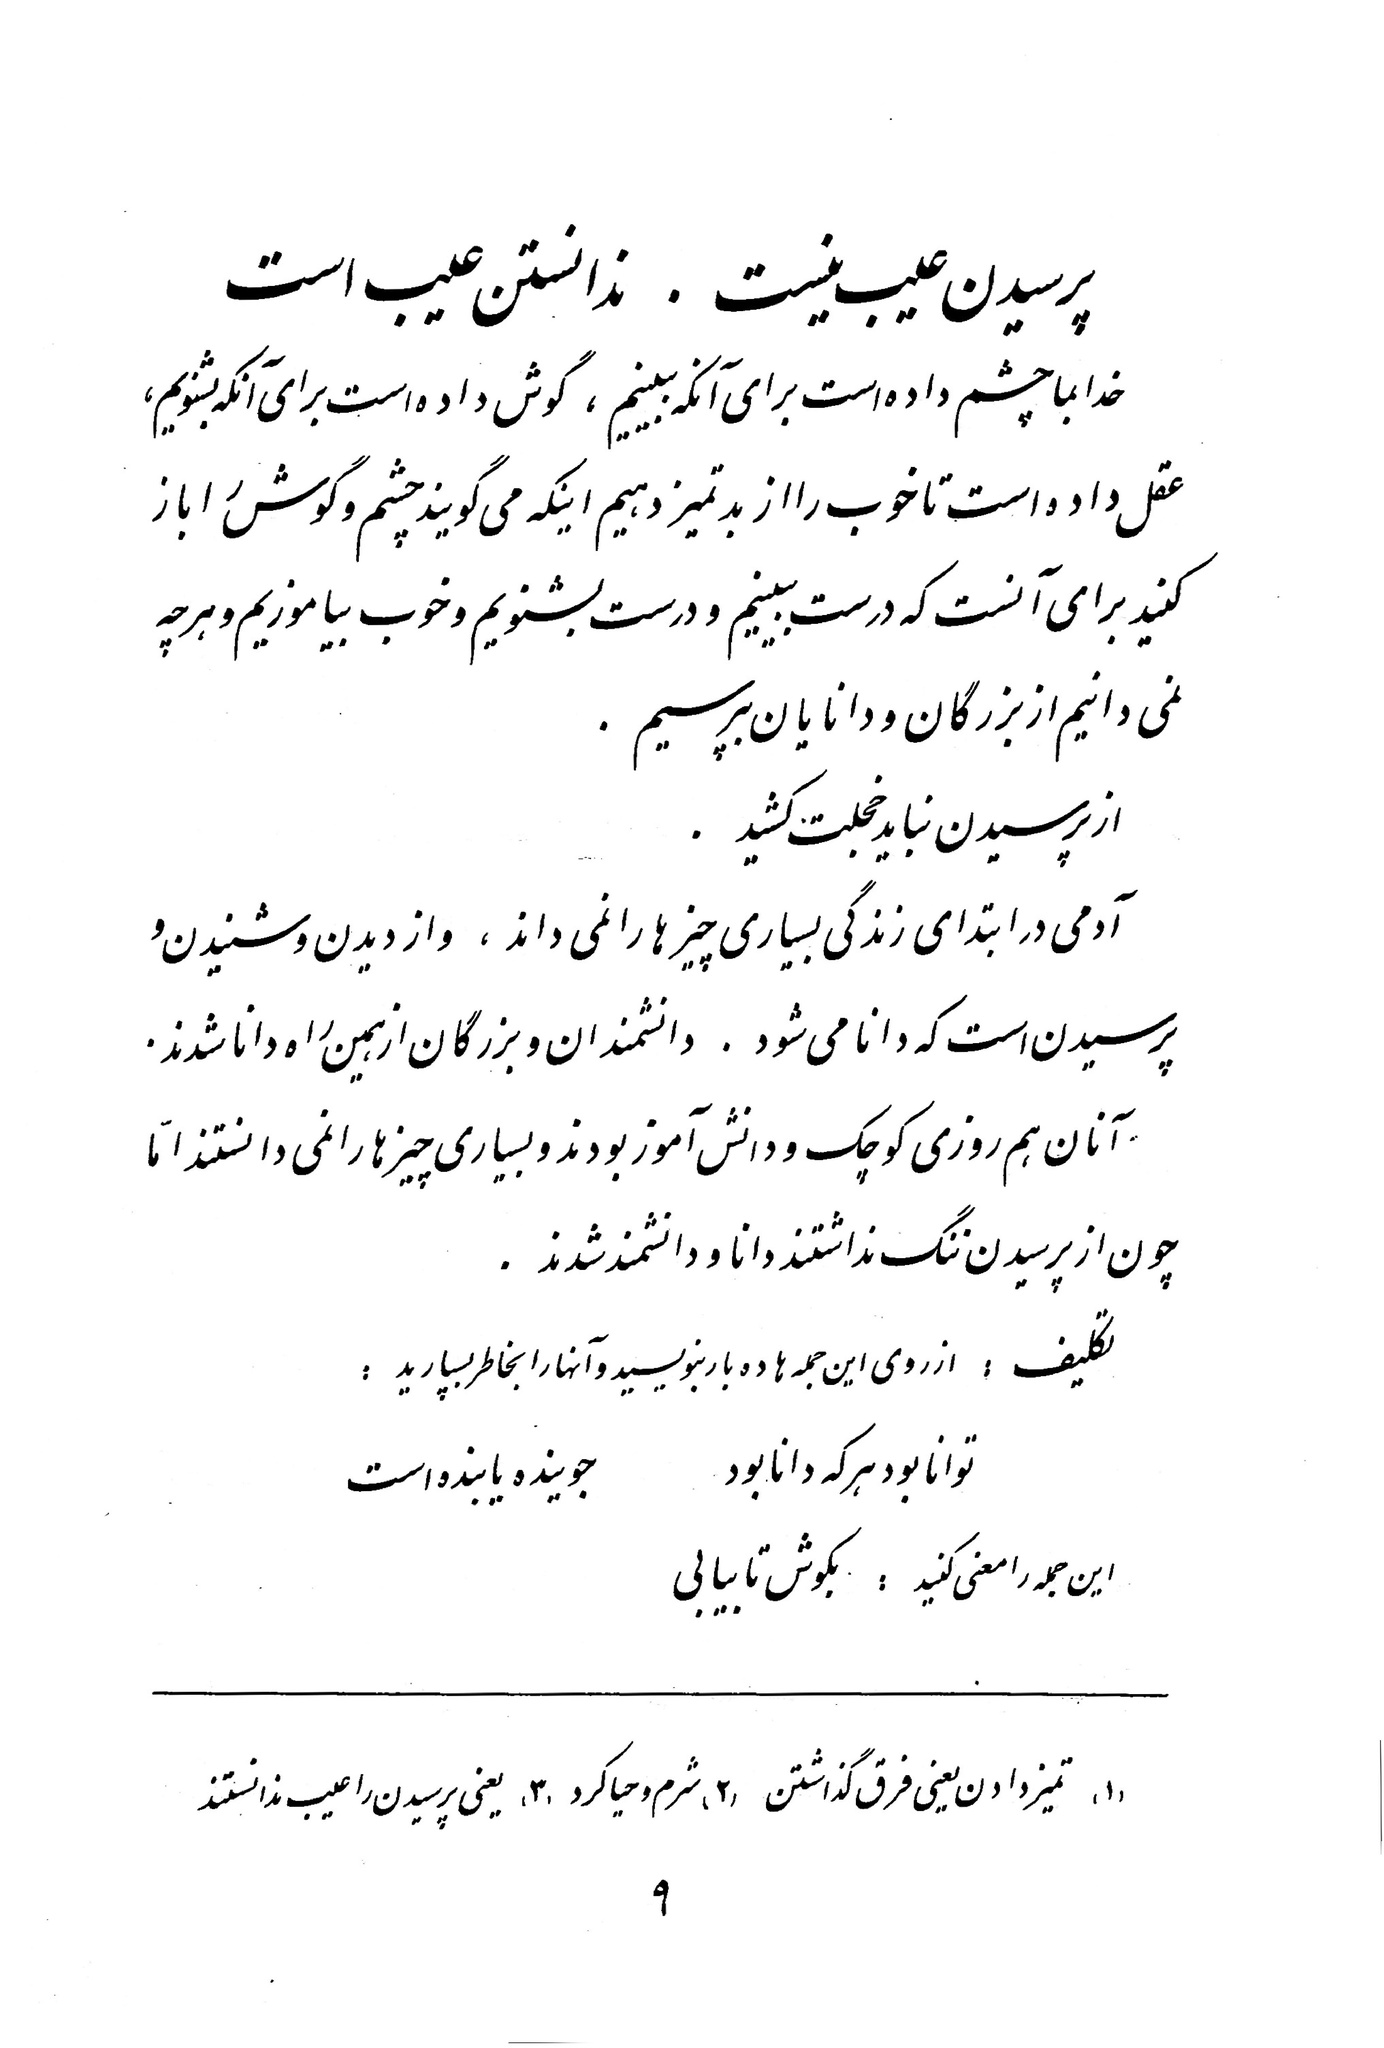 پرسیدن عیب نیست . ندانستن عیب است
خدا بما چشم داده است برای آنکه ببینیم ، گوش داده است برای آنکه بشنویم ،
عقل داده است تا خوب را از بد تمیز دهیم اینکه می گویند چشم و گوش را باز
کنید برای آنست که درست ببینیم و درست بشنویم و خوب بیاموزیم و هرچه
نمی دانیم از بزرگان و دانایان بپرسیم .
از پرسیدن نباید خجلت کشید .
آدمی در ابتدای زندگی بسیاری چیزها را نمی داند ، و از دیدن و شنیدن و
پرسیدن است که دانا می شود . دانشمندان و بزرگان از همین راه دانا شدند .
آنان هم روزی کوچک و دانش آموز بودند و بسیاری چیزها را نمی دانستند امّا
چون از پرسیدن ننگ نداشتند دانا و دانشمند شدند .
تکلیف : از روی این جمله ها ده بار بنویسید و آنها را بخاطر بسپارید :
توانا بود هر که دانا بود جوینده یابنده است
این جمله را معنی کنید : بکوش تا بیابی
(۱) تمیز دادن یعنی فرق گذاشتن (۲) شرم و حیا کرد (۳) یعنی پرسیدن را عیب ندانستند
۹